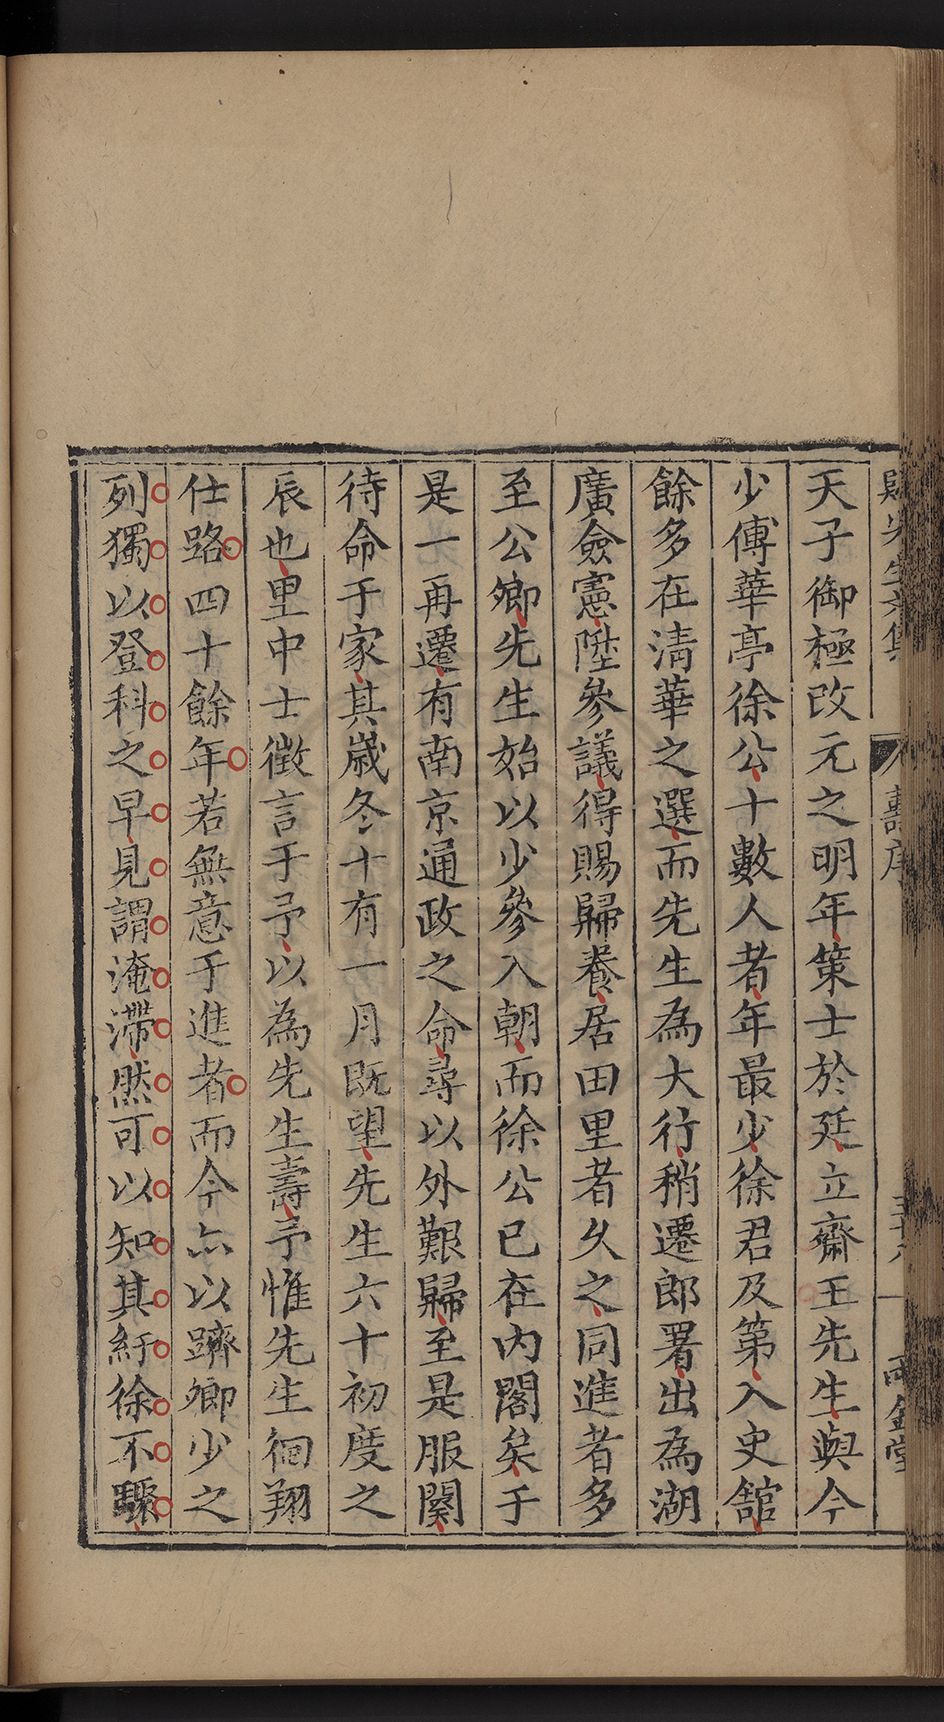 天子御極改元之明年策士於廷立齋王先生與今
少傅華亭徐公十數人者年最少徐君及第入史館
餘多在清華之選而先生為大行稍遷郎署出為湖
廣僉憲陞參議得賜歸養居田里者久之同進者多
至公卿先生始以少參入朝而徐公已在內閣矣于
是一再遷有南京通政之命尋以外艱歸至是服闋
待命于家其歲冬十有一月既望先生六十初度之
辰也里中士徵言于予以為先生壽予惟先生徊翔
仕路四十餘年若無意于進者而今亦以躋卿少之
列獨以登科之早見謂淹滯然可以知其紆徐不驟